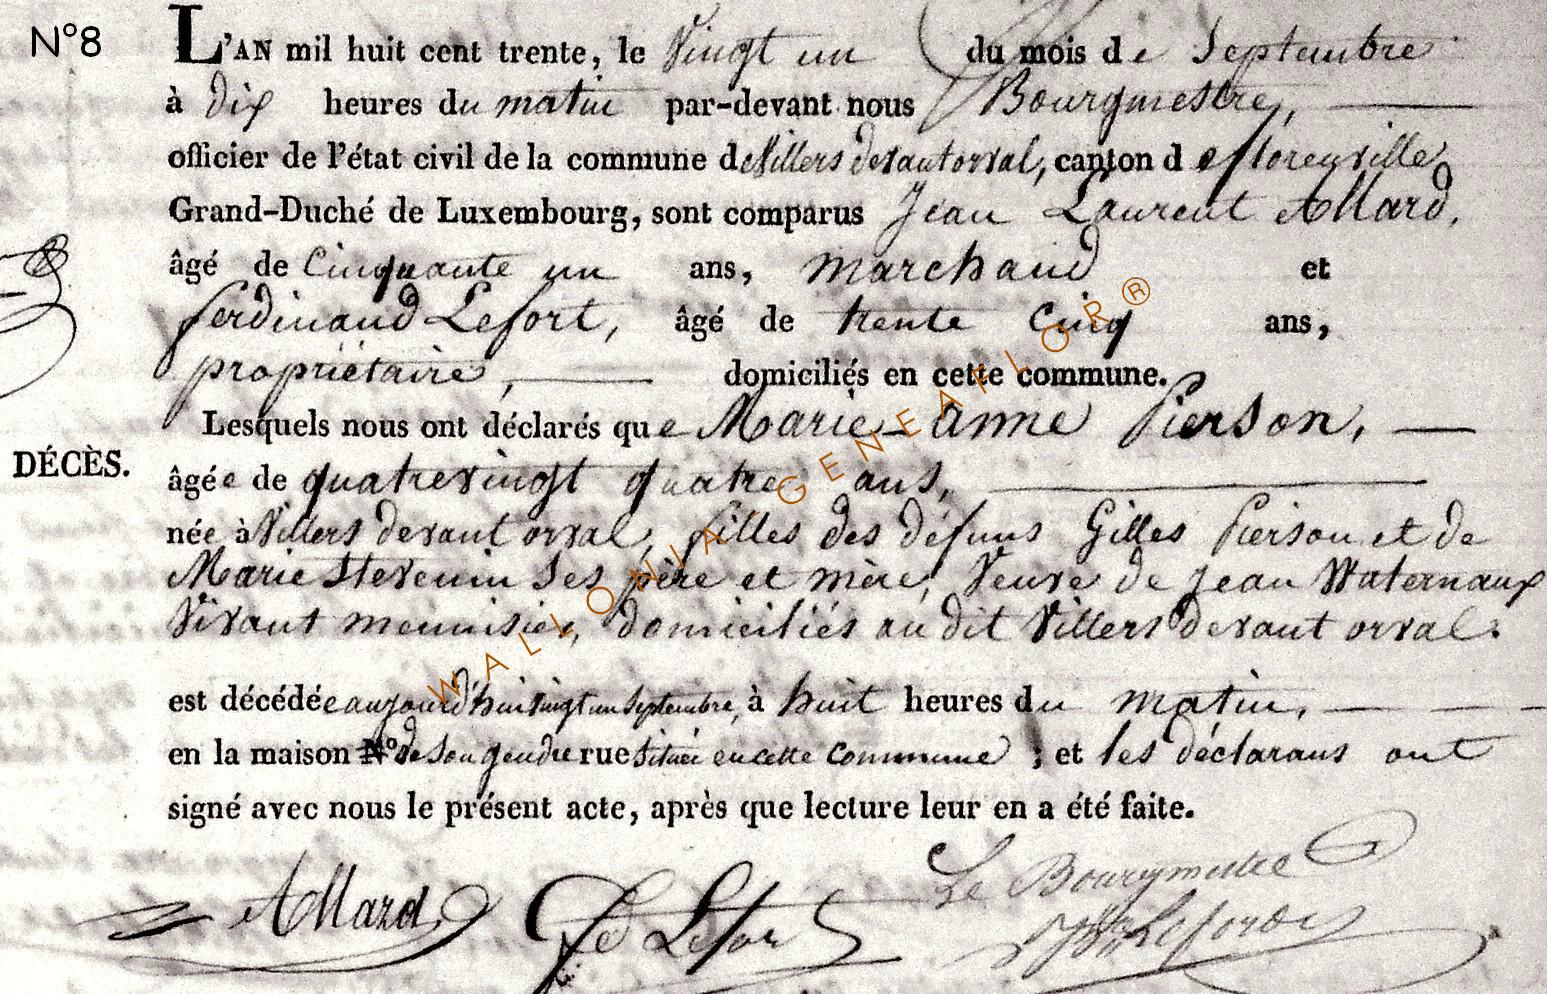 N°8
L'AN mil huit cent trente, le Vingt un du mois de Septembre
à dix heures du matin par-devant nous Bourgmestre,
officier de l'état civil de la commune de Villers devant orval, canton de florenville
Grand-Duché de Luxembourg, sont comparus Jean Laurent Allard,
âgé de Cinquante un ans, marchand et
ferdinand Lefort, âgé de trente Cinq ans,
propriétaire, domiciliés en cette commune.
Lesquels nous ont déclarés que Marie-anne Pierson,
DÉCÈS.
âgée de quatrevingt quatre ans,
née à Villers devant orval, filles des défuns Gilles Pierson et de
Marie Stevenin Ses père et mère, Veuve de Jean Waternaux
Vivant menuisier, domiciliés au dit Villers devant orval.
est décédée aujourd'hui vingt un Septembre, à huit heures du matin,
en la maison N° de Son gendre rue Située en cette Commune ; et les déclarans ont
signé avec nous le présent acte, après que lecture leur en a été faite.
Allard Lefort Le Bourgmestre
WALLONIA-GENEAFLOR®